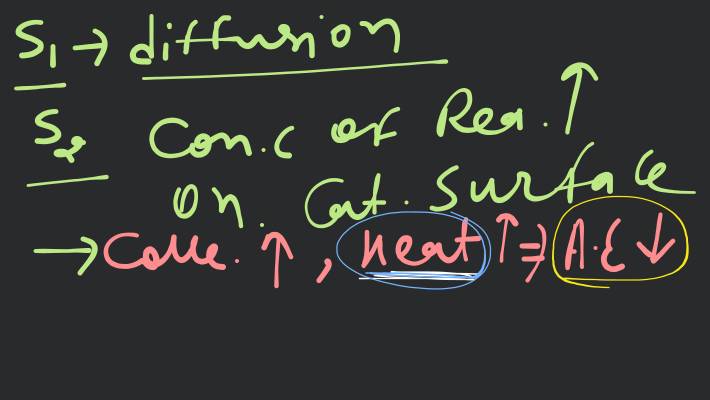 S1 → diffusion
S2 Con.c of Rea. ↑
on. Cat. Surface
→ Colle. ↑, heat ↑ ⇒ A.E ↓